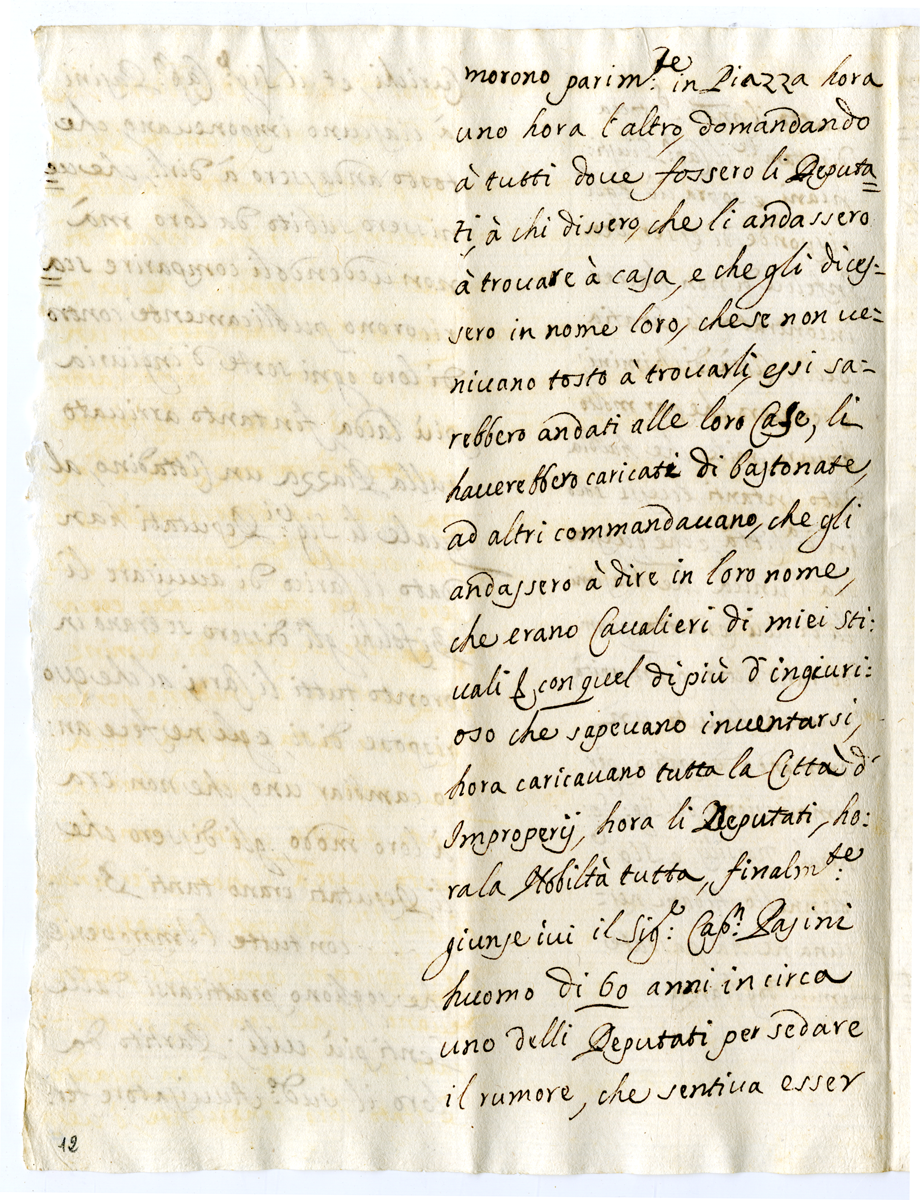 morono parim.te in Piazza hora
uno hora l'altro, domandando
à tutti doue fossero li Deputa=
ti, à chi dissero, che li andassero
à trouare à casa, e che gli dices=
sero in nome loro, che se non ue=
niuano tosto à trouarli, essi sa=
rebbero andati alle loro Case, li
hauerebbero caricati di bastonate,
ad altri commandauano, che gli
andassero à dire in loro nome,
che erano Caualieri di miei sti:
uali & con quel di più d'ingiuri:
oso che sapeuano inuentarsi,
hora caricauano tutta la Città d'
Improperij, hora li Deputati, ho:
ra la Nobiltà tutta, finalm.te
giunse iui il Sig.e Cap.n Pasini
huomo di 60 anni in circa
uno delli Deputati per sedare
il rumore, che sentiua esser
12